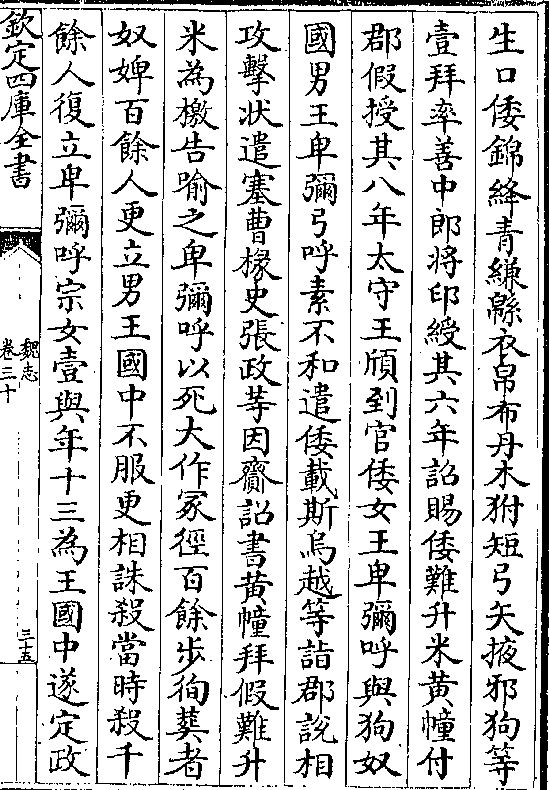 生口倭錦絳青縑緜衣帛布丹木拊短弓矢掖邪狗等
壹拜率善中郎將印綬其六年詔賜倭難升米黃幢付
郡假授其八年太守王頎到官倭女王卑彌呼與狗奴
國男王卑彌弓呼素不和遣倭載斯烏越等詣郡說相
攻擊狀遣塞曹掾史張政等因齎詔書黃幢拜假難升
米為檄告喻之卑彌呼以死大作冢徑百餘步徇葬者
奴婢百餘人更立男王國中不服更相誅殺當時殺千
餘人復立卑彌呼宗女壹與年十三為王國中遂定政
欽定四庫全書
魏志
卷三十
三十五